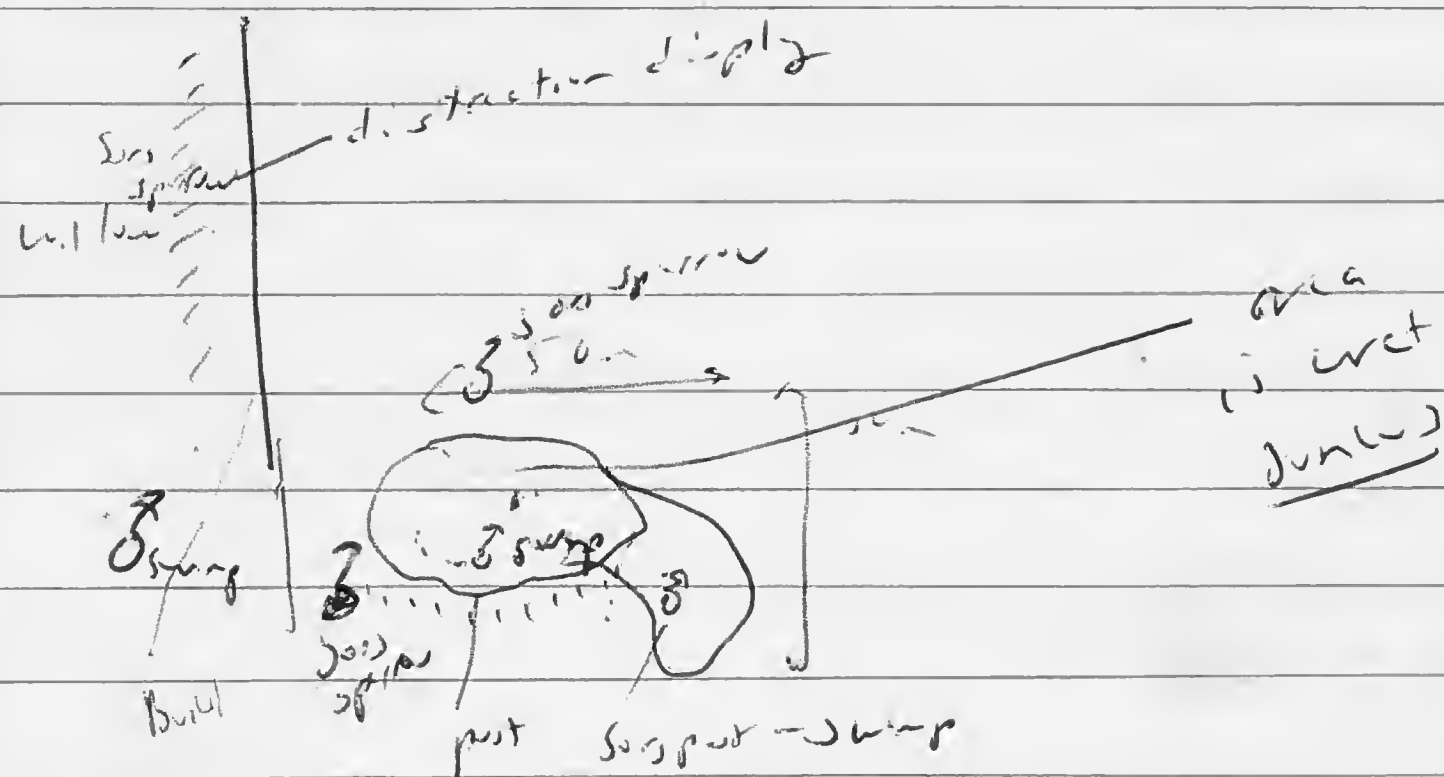 distraction display
Song
sparrow
willow
♂ song sparrow
50m
area
is wet
50m
♂ swamp
♂ swamp
♂
♂
song
sparrow
post
song post swamp